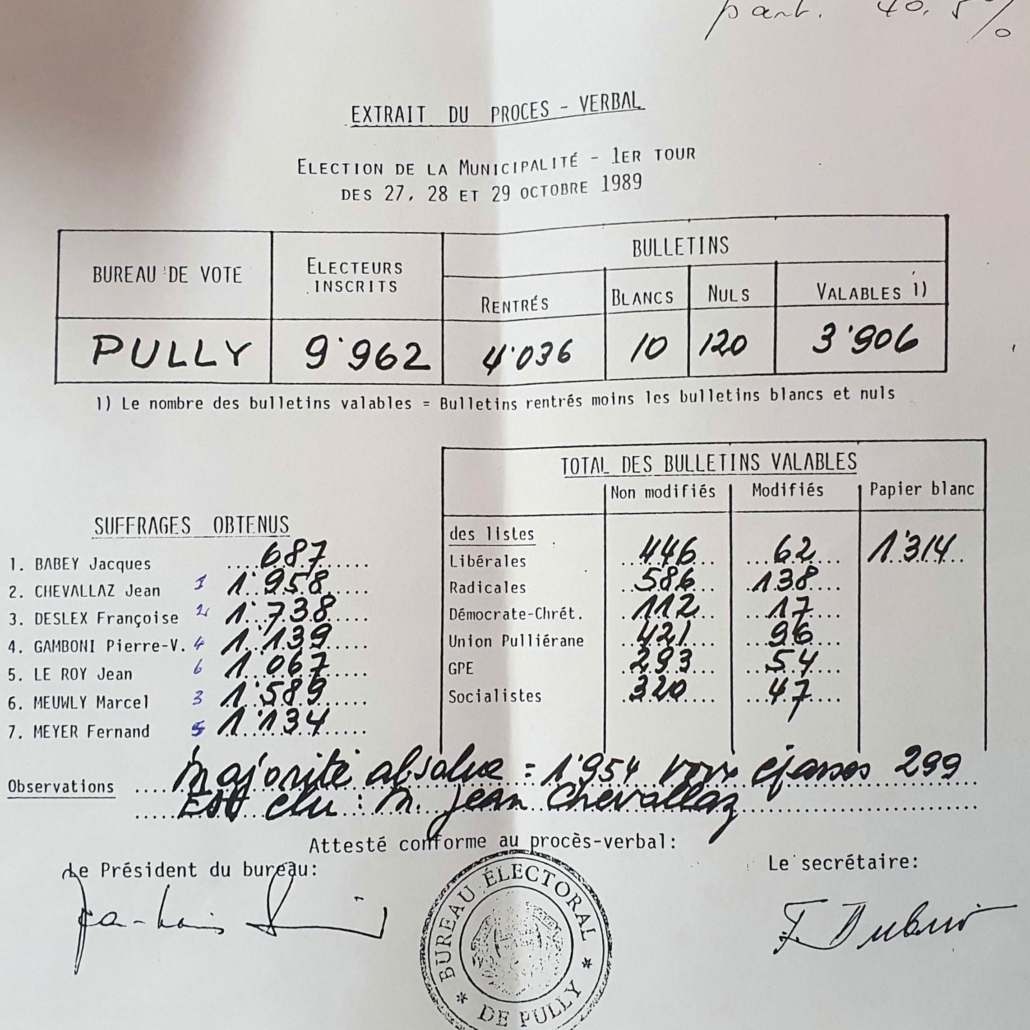 part. 40.5%
EXTRAIT DU PROCES - VERBAL
ELECTION DE LA MUNICIPALITÉ - 1ER TOUR
DES 27, 28 ET 29 OCTOBRE 1989
BUREAU DE VOTE ELECTEURS INSCRITS BULLETINS
RENTRÉS BLANCS NULS VALABLES 1)
PULLY 9'962 4'036 10 120 3'906
1) Le nombre des bulletins valables = Bulletins rentrés moins les bulletins blancs et nuls
TOTAL DES BULLETINS VALABLES
Non modifiés Modifiés Papier blanc
des listes
Libérales 446 62 1'314
Radicales 586 138
Démocrate-Chrét. 112 17
Union Pulliérane 421 96
GPE 293 54
Socialistes 320 47
SUFFRAGES OBTENUS
1. BABEY Jacques 687
2. CHEVALLAZ Jean 1 1'958
3. DESLEX Françoise 2 1'738
4. GAMBONI Pierre-V. 4 1'139
5. LE ROY Jean 6 1'067
6. MEUWLY Marcel 3 1'589
7. MEYER Fernand 5 1'134
Observations majorité absolue = 1'954 voix éparses 299
Est élu : M. Jean Chevallaz
Attesté conforme au procès-verbal:
Le Président du bureau: Le secrétaire:
BUREAU ÉLECTORAL
* DE PULLY *